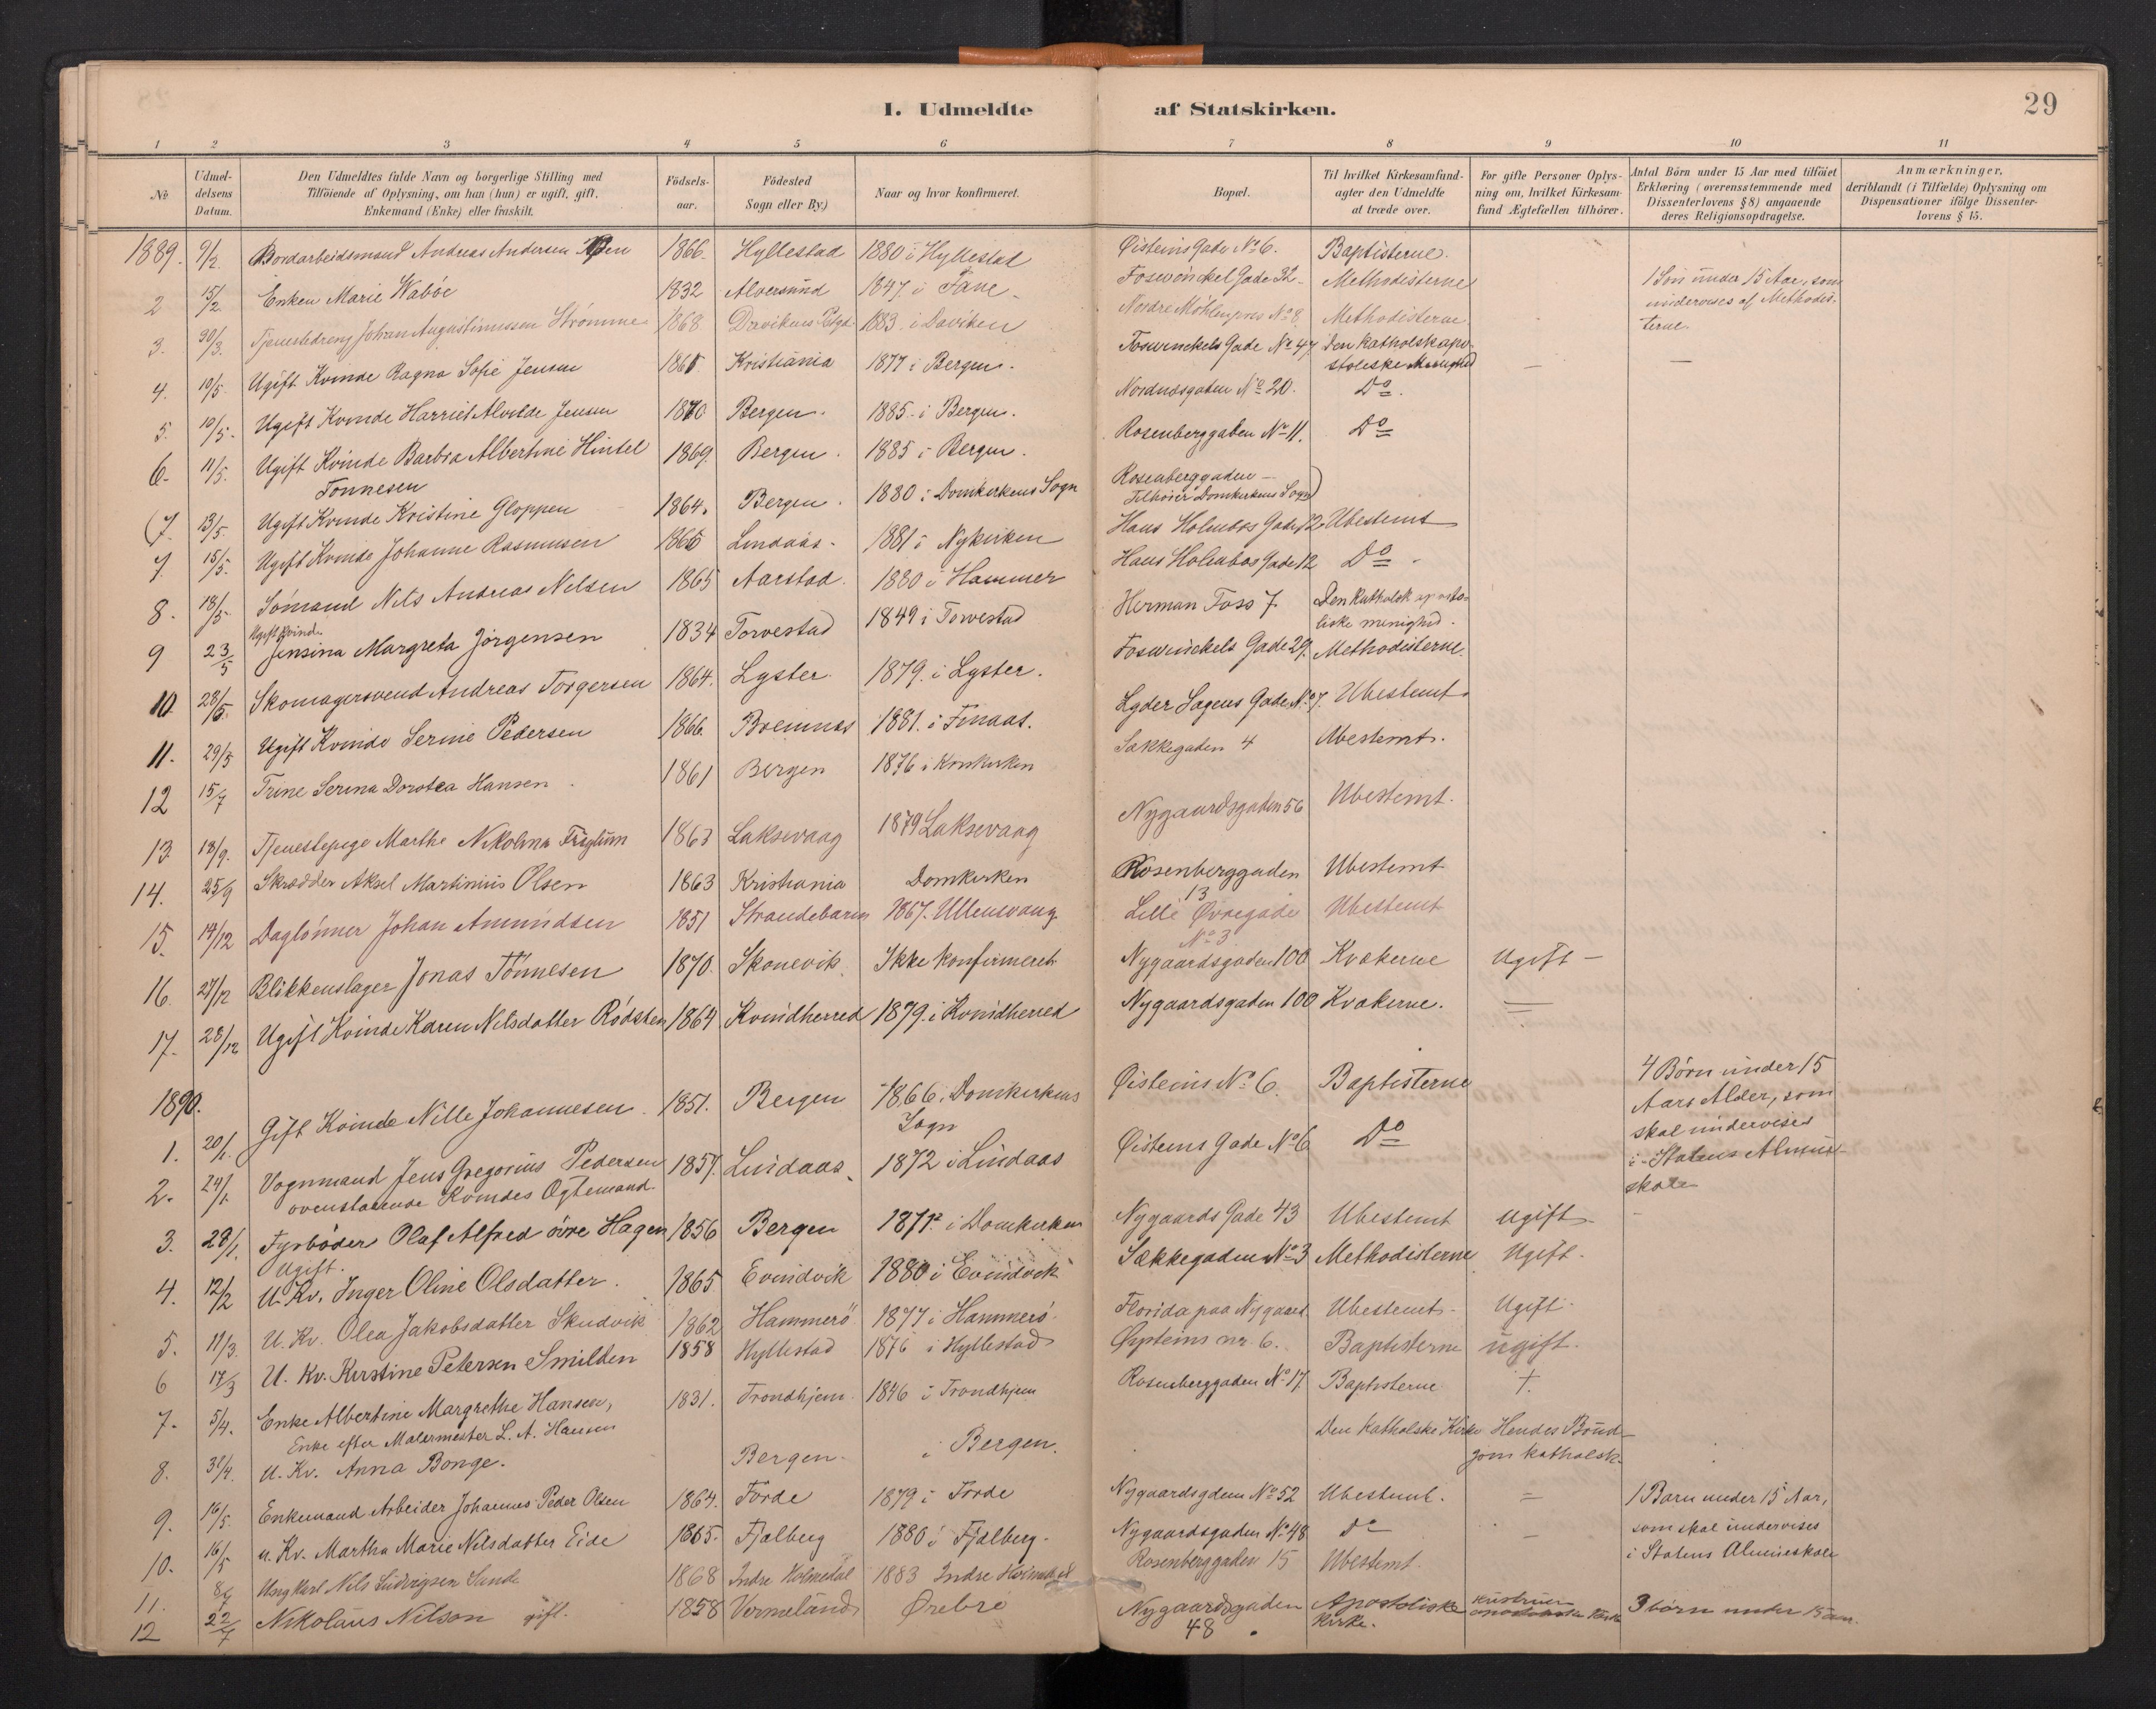 29
I. Udmeldte af Statskirken.
1 2 3 4 5 6 7 8 9 10 11
No
Udmel-
delsens
Datum.
Den Udmeldtes fulde Navn og borgerlige Stilling med
Tilföiende af Oplysning, om han (hun) er ugift, gift,
Enkemand (Enke) eller fraskilt.
Födsels-
aar.
Födested
Sogn eller By.)
Naar og hvor konfirmeret.
Bopæl.
Til hvilket Kirkesamfund-
agter den Udmeldte
at træde over.
For gifte Personer Oplys-
ning om, hvilket Kirkesam-
fund Ægtefællen tilhörer.
Antal Börn under 15 Aar med tilföiet
Erklæring (overensstemmende med
Dissenterlovens § 8) angaaende
deres Religionsopdragelse.
Anmærkninger,
deriblandt (i Tilfælde) Oplysning om
Dispensationer ifölge Dissenter-
lovens § 15.
1889. 9/2. Bordarbeidsmand Andreas Andersen 1866. Hyllestad 1880 i Hyllestad Øisteins Gade No 6. Baptisterne.
2 15/2. Enken Marie Wabøe 1832 Alversund 1847. i Fane. Foswinckel Gade 32 Methodisterne 1 Søn under 15 Aar, som
undervises af Methodis-
terne.
3. 30/3. Tjenestedreng Johan Augustinussen Strømme 1868 Davikens Pstgd. 1883. i Daviken Nordre Möhlenpris No 8 Methodisterne
4. 10/5. Ugift Kvinde Ragna Sofie Jensen 1861 Kristiania 1877 i Bergen. Foswinckels Gade No 47 Den katholsk apo-
stoliske Menighed — —
5. 10/5. Ugift Kvinde Harriet Alvilde Jensen 1870 Bergen. 1885. i Bergen. Nordnæsgaden No 20. Do.
6. 11/5. Ugift Kvinde Barbra Albertine Hintel
Tonnesen 1869. Bergen. 1885 i Bergen. Rosenberggaden No 11. Do
(7. 13/5. Ugift Kvinde Kristine Gloppen 1864. Bergen. 1880 i Domkirkens Sogn Rosenberggaden —
Tilhører Domkirkens Sogn)
7. 15/5. Ugift Kvinde Johanne Rasmusen 1865 Lindaas. 1881 i Nykirken Hans Holmbos Gade 12 Ubestemt
8. 18/5. Sömand Nils Andreas Nelsen 1865 Aarstad. 1880 i Hammer Hans Holmbos Gade 12 Do.
9 23/5 Ugift Kvinde
Jensina Margreta Jörgensen 1834 Torvestad 1849 i Torvestad Herman Foss 7 Den katholsk aposto-
liske menighed.
10 28/5. Skomagersvend Andreas Torgersen 1864. Lyster. 1879. i Lyster. Foswinckels Gade 29. Methodisterne.
11. 29/5 Ugift Kvinde Serine Pedersen 1866. Bremnes 1881. i Finaas. Lyder Sagens Gade No 7. Ubestemt
12 15/7 Trine Serina Dorotea Hansen 1861 Bergen 1876 i Korskirken Sækkegaden 4 Ubestemt.
13. 18/9. Tjenestepige Marthe Nikolina 1863 Laksevaag 1879 Laksevaag Nygaardsgaden 56 Ubestemt.
14. 25/9 Skrædder Aksel Martinius Olsen 1863 Kristiania Domkirken Rosenberggaden
13 Ubestemt
15. 14/12 Daglönner Johan Amundsen 1851 Strandebarm 1867. Ullensvang Lille Øvregade
No 3 Ubestemt
16. 27/12 Blikkenslager Jonas Tönnesen 1870. Skonevik. Ikke konfirmeret Nygaardsgaden 100 Kvækerne Ugift —
17. 28/12 Ugift Kvinde Karen Nilsdatter Rödsten 1864 Kvindherred 1879. i Kvindherred Nygaardsgaden 100 Kvækerne. =
1890.
1. 20/1. Gift Kvinde Nille Johannesen. 1851. Bergen 1866 i Domkirkens
Sogn Øisteins No 6. Baptisterne 4 Børn under 15
Aars Alder, som
skal undervises
i Statens Almue-
skole
2. 24/1. Vognmand Jens Gregorius Pedersen
ovenstaaende Kvindes Ægtemand 1857. Lindaas. 1872 i Lindaas Øisteins Gade No 6 Do
3. 28/1. Fyrböder Olaf Alfred övre Hagen
ugift. 1856 Bergen 1871. i Domkirken Nygaards Gade 43 Ubestemt ugift. -
4. 12/2 U. Kv. Inger Oline Olsdatter. 1865 Evindvik 1880 i Evindvik Sækkegaden No 3 Methodisterne Ugift.
5. 11/3. U. Kv. Olea Jakobsdatter Skudvik 1862 Hammerö 1877 i Hammerö Florida paa Nygaard. Ubestemt Ugift.
6 17/3 U. Kv. Kirstine Petersen Smilden 1858 Hyllestad 1876 i Hyllestad Øysteins nr. 6. Baptisterne ugift.
7. 5/4. Enke Albertine Margrethe Hansen,
Enke efter Malermester L. A. Hansen 1831. Trondhjem. 1846 i Trondhjem Rosenberggaden No 17 Baptisterne †.
8. U. Kv. Anna Bonge. Bergen. i Bergen. Den katholske Kirke Hendes Brud-
gom katholsk.
9. 16/5. Enkemand Arbeider Johannes Peder Olsen 1864. Förde 1879 i Förde Nygaardsgden No 52 Ubestemt. = 1 Barn under 15 Aar,
som skal undervises
i Statens Almueskole
10. 16/5 u. Kv. Martha Marie Nilsdatter Eide 1865. Fjælberg 1880 i Fjælberg. Nygaardsgaden No 48 do —
11. Ungkarl Nils Ludvigsen Sunde 1868 Indre Holmedal 1883 Indre Holmedal Rosenberggaden 15 Ubestemt.
12 22/7 Nikolaus Nilson gift. 1858 Vermeland Örebro Nygaardsgaden
48 Apostoliske
Kirke. 3 börn under 15 aar.